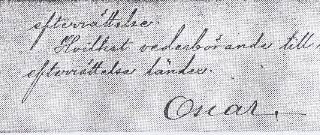 efterrättelse.
Hvilket vederbörande till
efterrättelse länder.
Oscar.